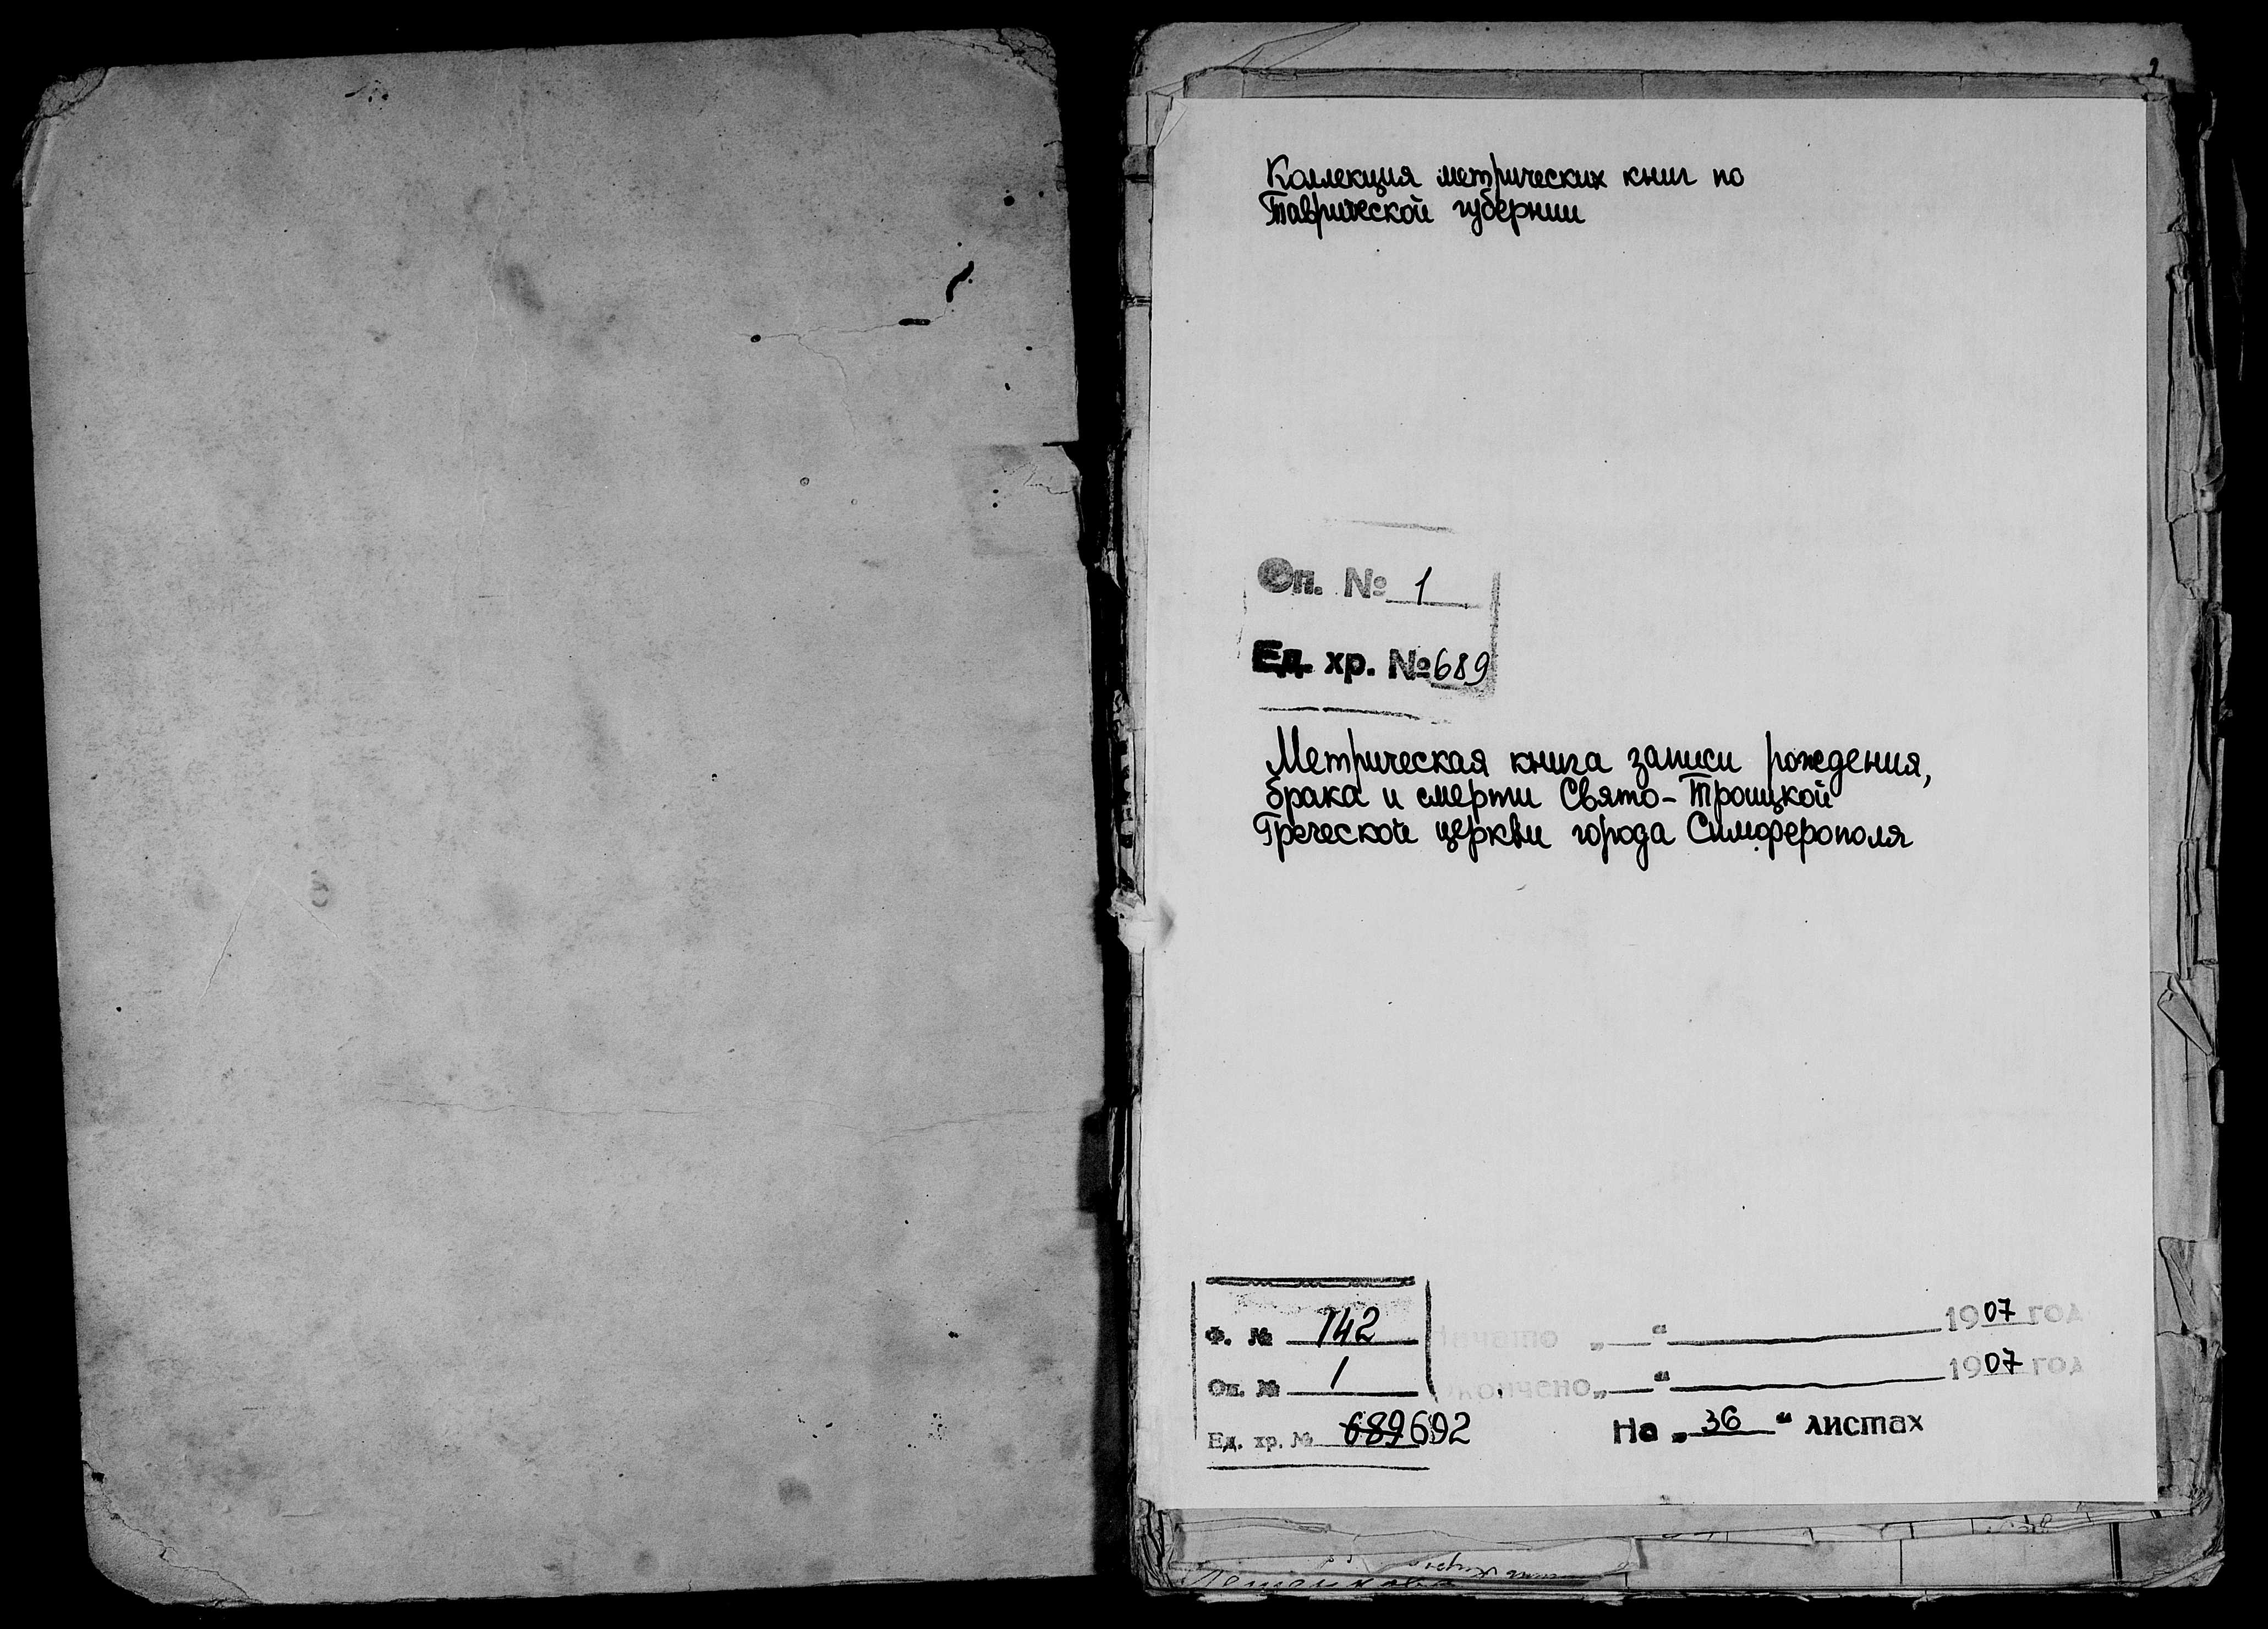 Коллекция метрических книг по
Таврической губернии
Оп. № 1
Ед. хр. № 689
Метрическая книга записи рождения,
брака и смерти Свято-Троицкой
Греческой церкви города Симферополя
Ф. № 142
Оп. № 1
Ед. хр. № 689 692
Начато „ “ 1907 год
Окончено „ “ 1907 год
На „ 36 “ листах